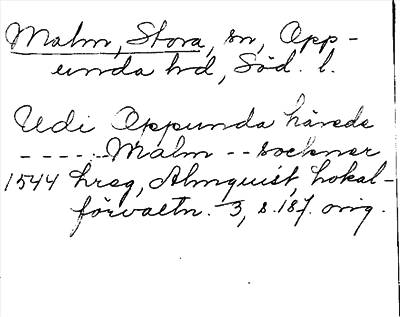 Malm, Stora, sn, Opp-
unda hd, Söd. l.
Udi Oppunda härede
----- Malm -- sockner
1544 hreg, Almquist, Lokal-
förvaltn. 3, s. 187. orig.